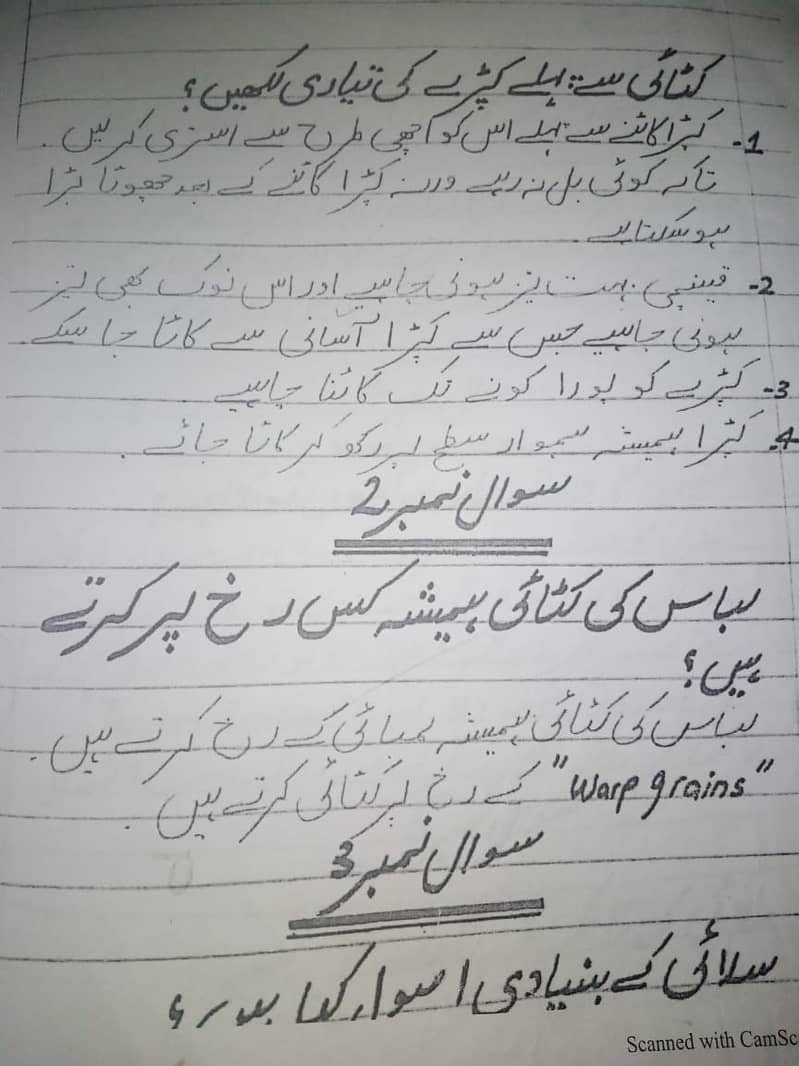 کٹائی سے پہلے کپڑے کی تیاری لکھیں؟
1- کپڑا کاٹنے سے پہلے اس کو اچھی طرح سے استری کریں.
تاکہ کوئی بل نہ رہے ورنہ کپڑا کاٹنے کے بعد چھوٹا بڑا
ہو سکتا ہے.
2- قینچی بہت تیز ہونی چاہیے اور اس نوک بھی تیز
ہونی چاہیے جس سے کپڑا آسانی سے کاٹا جا سکے.
3- کپڑے کو پورا کونے تک کاٹنا چاہیے.
4- کپڑا ہمیشہ ہموار سطح پر رکھ کر کاٹا جائے.
سوال نمبر 2
لباس کی کٹائی ہمیشہ کس رخ پر کرتے
ہیں؟
لباس کی کٹائی ہمیشہ لمبائی کے رخ کرتے ہیں.
"Warp grains" کے رخ پر کٹائی کرتے ہیں.
سوال نمبر 3
سلائی کے بنیادی اصول کیا ہیں؟
Scanned with CamSc